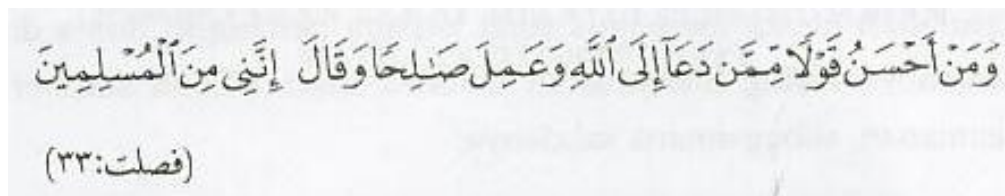 وَمَنْ أَحْسَنُ قَوْلًا مِّمَّن دَعَآ إِلَى ٱللَّهِ وَعَمِلَ صَـٰلِحًا وَقَالَ إِنَّنِى مِنَ ٱلْمُسْلِمِينَ
(فصلت:٣٣)